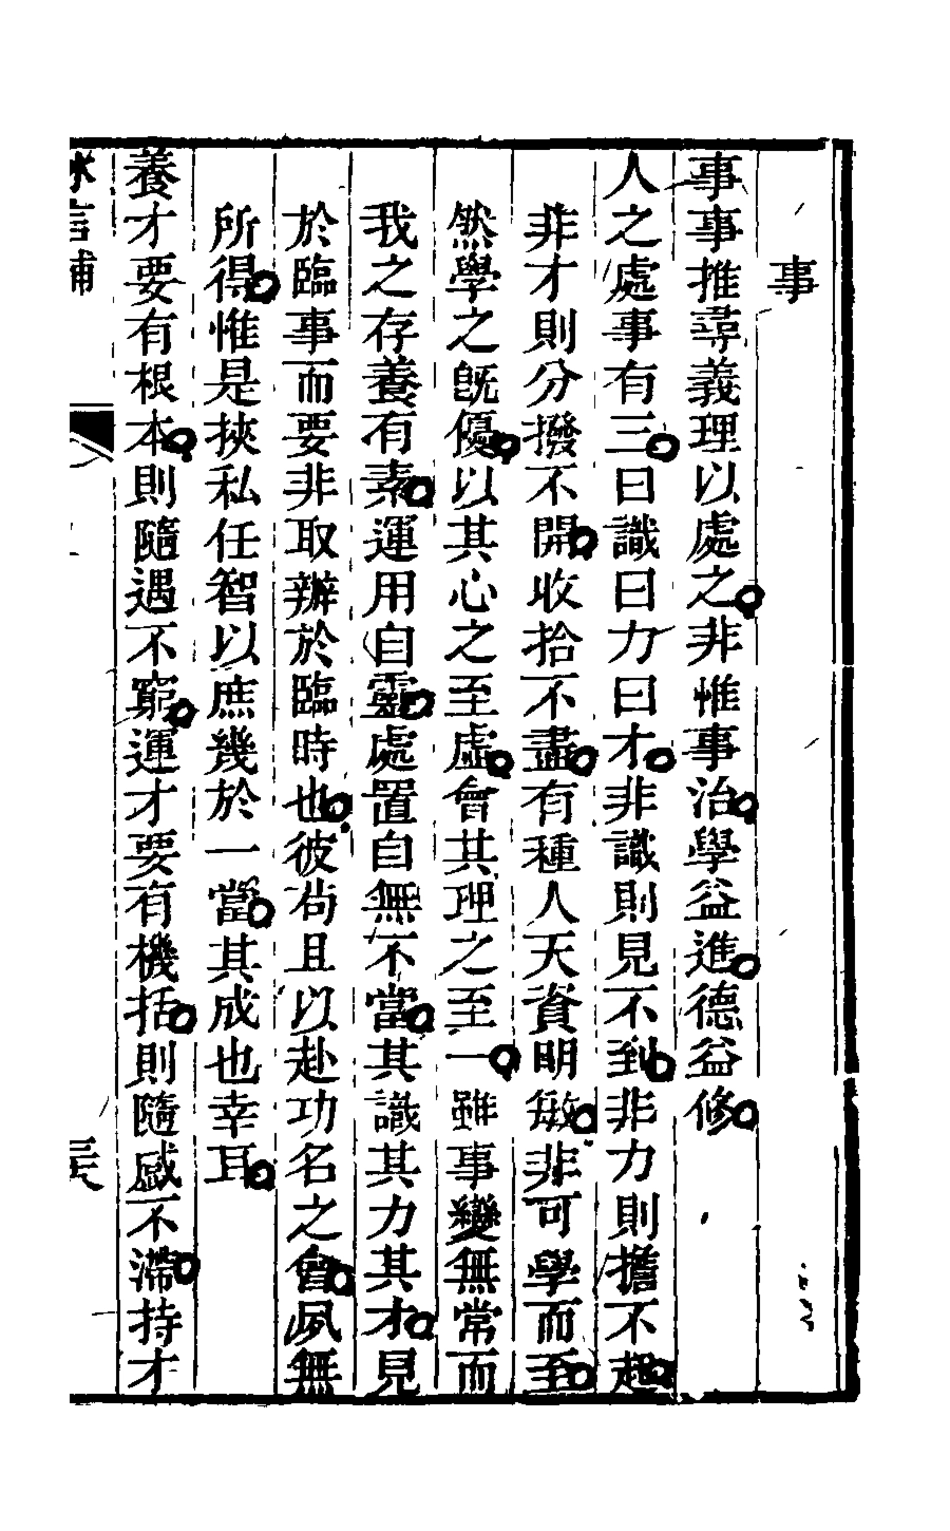 事
事事推尋義理以處之非惟事治學益進德益修
人之處事有三曰識曰力曰才非識則見不到非力則擔不起
非才則分撥不開收拾不盡有種人天資明敏非可學而至
然學之旣優以其心之至虛會其理之至一雖事變無常而
我之存養有素運用自靈處置自無不當其識其力其才見
於臨事而要非取辦於臨時也彼尚且以赴功名之會夙無
所得惟是挾私任智以庶幾於一當其成也幸耳
養才要有根本則隨遇不窮運才要有機括則隨感不滯持才
冰言補